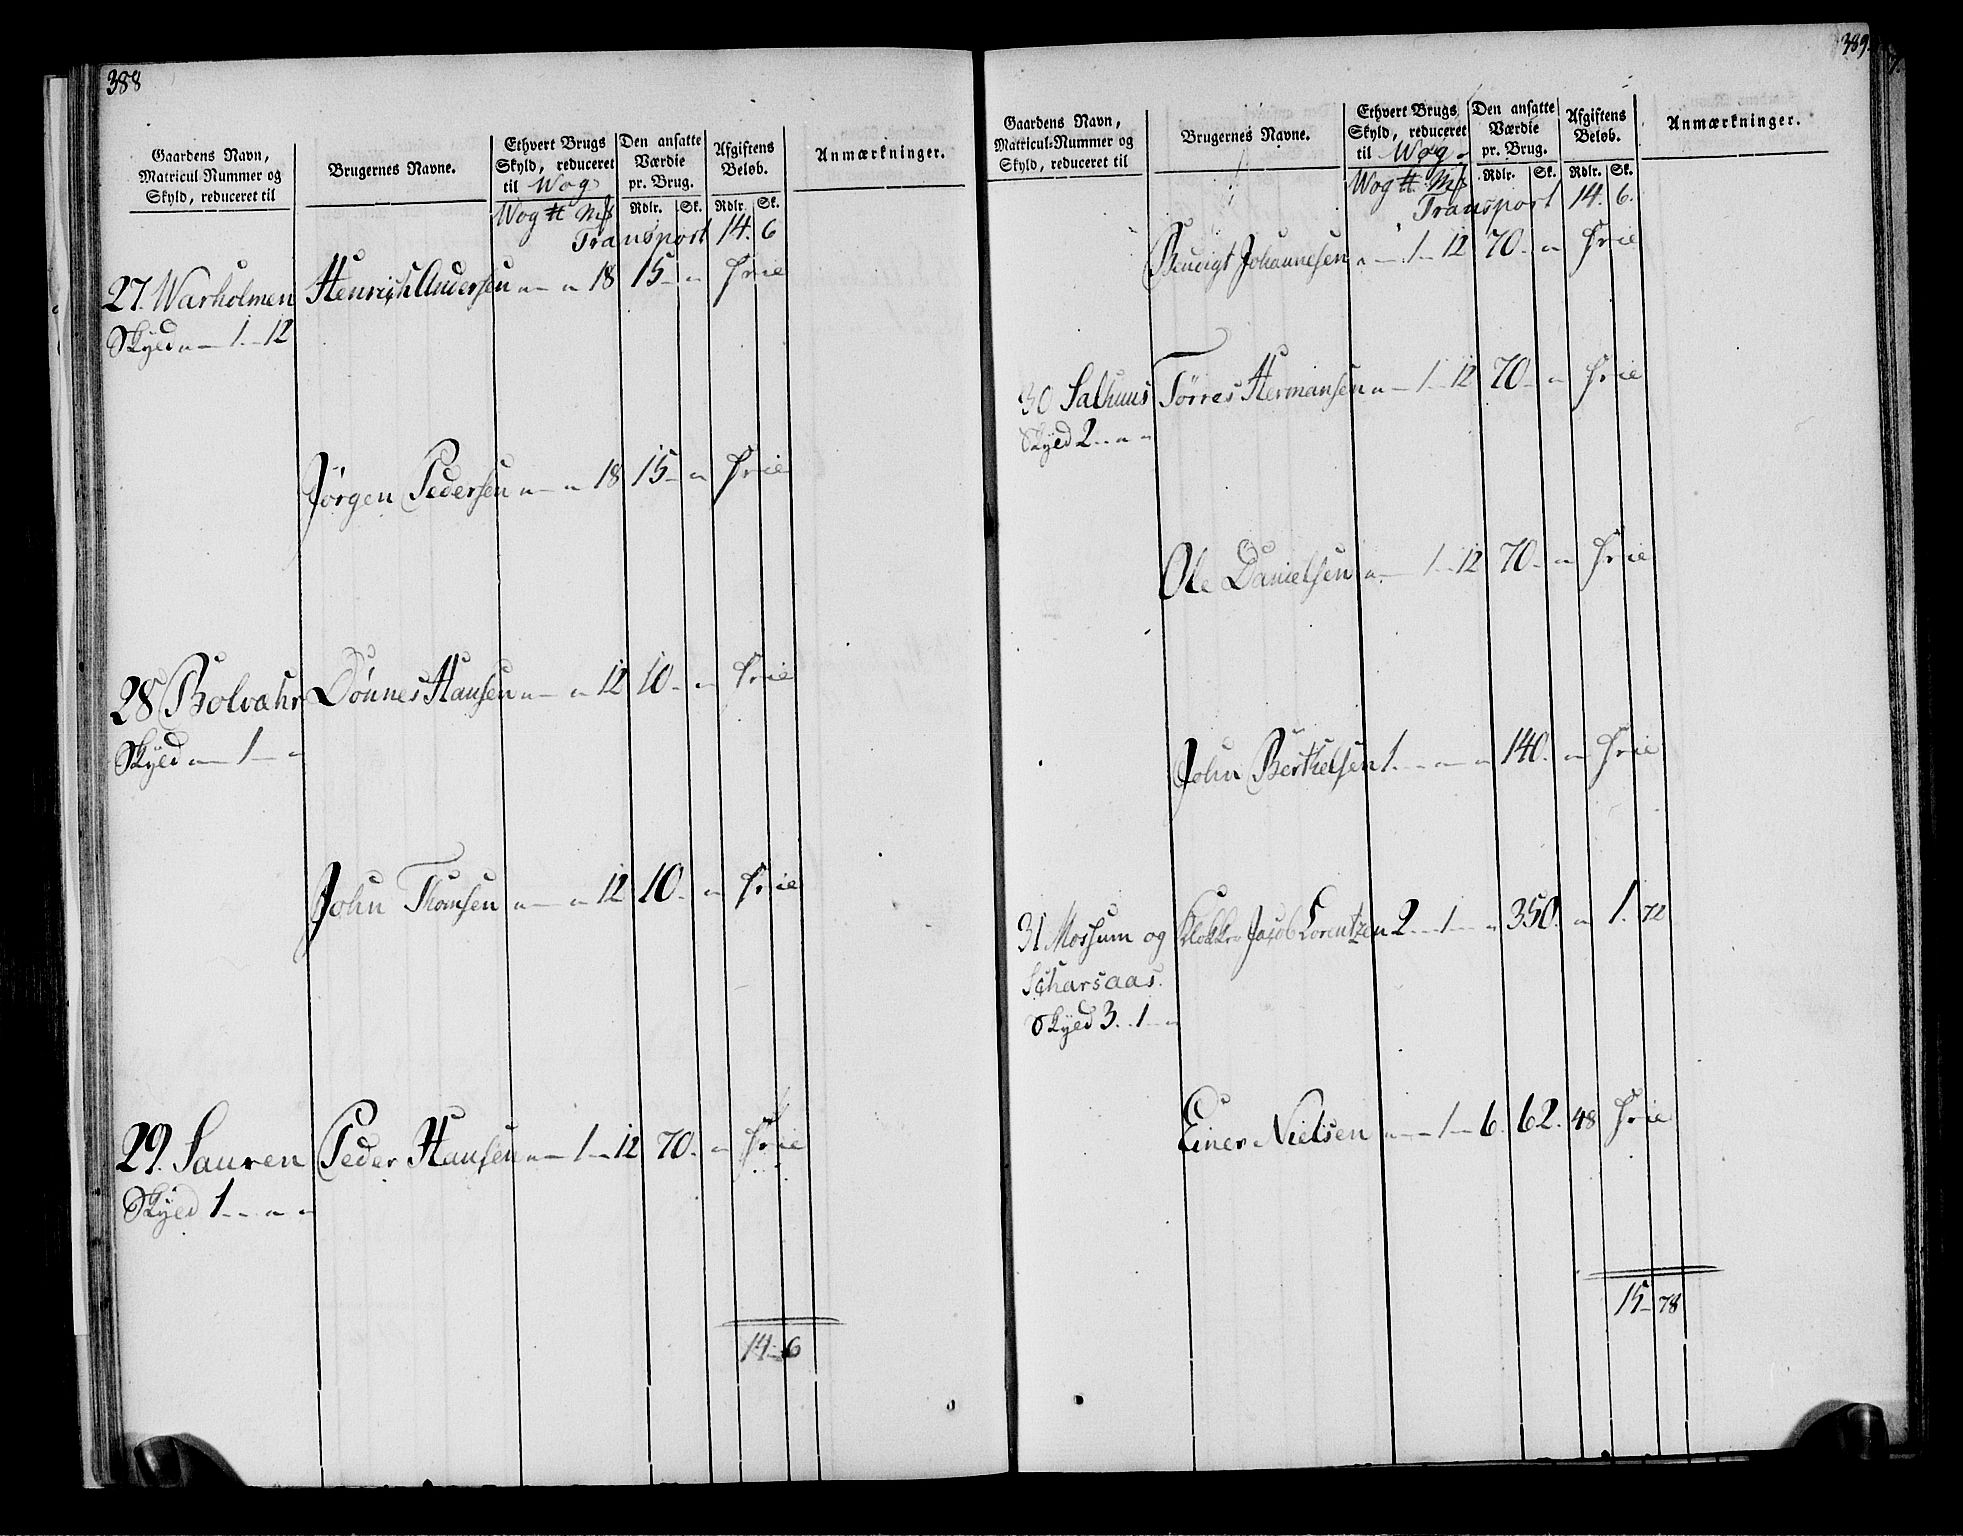 388
Gaardens Navn,
Matricul Nummer og
Skyld, reduceret til
Brugernes Navne.
Ethvert Brugs
Skyld, reduceret
til Wog
Den ansatte
Værdie
pr. Brug.
Afgiftens
Beløb.
Anmærkninger.
Wog ℔ Mk
Rdlr. Sk. Rdlr. Sk.
Transport 14. 6
27. Warholmen Henrich Andersen „ — „ 18 15 — „ frie
Skyld „ — 1 — 12
Jørgen Pedersen „ — „ 18 15 — „ frie
28 Bolvæhr Dønnes Hansen „ — „ 12 10 — „ frie
Skyld „ — 1 — „
John Thomsen „ — „ 12 10 — „ frie
29. Sauren Peder Hansen „ — 1 — 12 70 — „ frie
Skyld 1 — „ — „
14 — 6
389
Gaardens Navn,
Matricul-Nummer og
Skyld, reduceret til
Brugernes Navne.
Ethvert Brugs
Skyld, reduceret
til Wog
Den ansatte
Værdie
pr. Brug.
Afgiftens
Beløb.
Anmærkninger.
Wog ℔ Mk
Rdlr. Sk. Rdlr. Sk.
Transport 14. 6.
Bendigt Johannesen „ — 1 — 12 70 — „ frie
30 Salhuus Tørres Hermansen „ — 1 — 12 70 — „ frie
Skyld 2 — „ — „
Ole Danielsen „ — 1 — 12 70 — „ frie
John Berthelsen 1 — „ — „ 140 — „ frie
31 Mossum og Klokker Jacob Lorentzen 2 — 1 — „ 350 — „ 1. 72
Scharsaas.
Skyld 3 — 1 — „
Einer Nielsen „ — 1 — 6 62. 48 frie
15 — 78